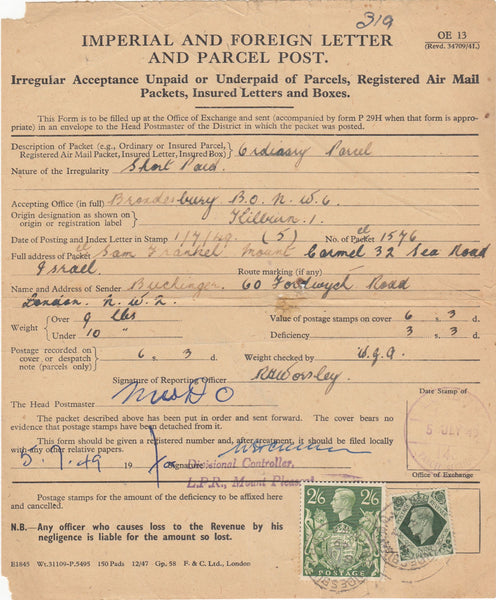 319
OE 13
(Revd. 34709/41.)
IMPERIAL AND FOREIGN LETTER
AND PARCEL POST.
Irregular Acceptance Unpaid or Underpaid of Parcels, Registered Air Mail
Packets, Insured Letters and Boxes.
This Form is to be filled up at the Office of Exchange and sent (accompanied by form P 29H when that form is appro-
priate) in an envelope to the Head Postmaster of the District in which the packet was posted.
Description of Packet (e.g., Ordinary or Insured Parcel,
Registered Air Mail Packet, Insured Letter, Insured Box) Ordinary Parcel
Nature of the Irregularity Short Paid
Accepting Office (in full) Brondesbury B.O. N.W.6
Origin designation as shown on
origin or registration label Kilburn. 1.
Date of Posting and Index Letter in Stamp 1/7/49 (5) No. of Packet 1576
Full address of Packet Sam Frankel Mount Carmel 32 Sea Road
Israel. Route marking (if any)
Name and Address of Sender Buchinger 60 Fordwych Road
London. N.W.2.
Weight Over 9 lbs
Under 10 "
Value of postage stamps on cover 6 s. 3 d.
Deficiency 3 s. 3 d.
Postage recorded on
cover or despatch
note (parcels only) 6 s. 3 d.
Weight checked by W.G.A.
Signature of Reporting Officer RHWorsley
The Head Postmaster NWDO
Date Stamp of
The packet described above has been put in order and sent forward. The cover bears no
evidence that postage stamps have been detached from it.
This form should be given a registered number and, after treatment, it should be filed locally
with any relative papers.
5 JLY 49
Office of Exchange
5.7.49 19 Signature
Divisional Controller,
L.P.R., Mount Pleasant
Postage stamps for the amount of the deficiency to be affixed here
and cancelled.
N.B.—Any officer who causes loss to the Revenue by his
negligence is liable for the amount so lost.
2/6 2/6
POSTAGE
E1845 Wt.31109-P.5495 150 Pads 12/47 Gp. 58 F. & C. Ltd., London